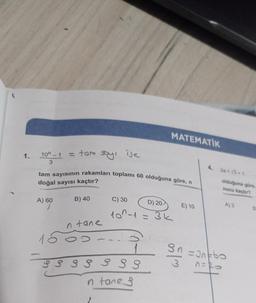 MATEMATİK
1. 10ⁿ - 1 / 3 = tam sayı ise
tam sayısının rakamları toplamı 60 olduğuna göre, n
doğal sayısı kaçtır?
A) 60 B) 40 C) 30 D) 20 E) 10
10ⁿ-1 = 3k
n tane
1000---0
1
99999999
n tane 9
9n / 3 = 3n = 60
4.
olduğuna göre,
kaçtır?
A) 3